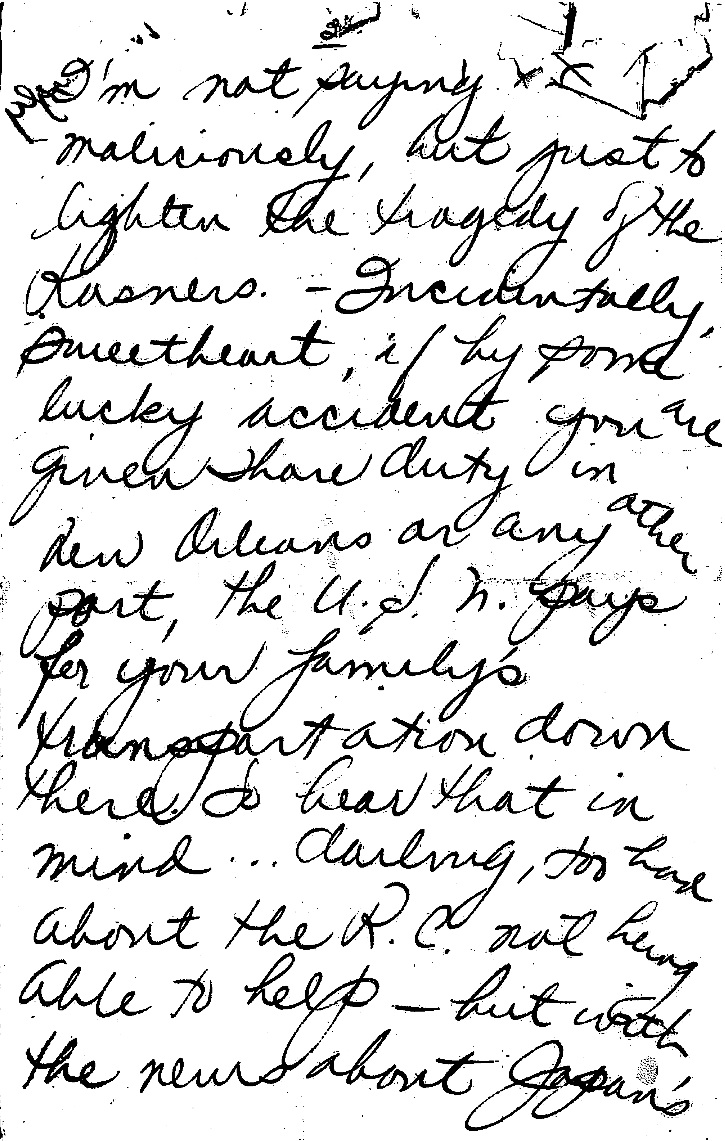 I'm not saying
maliciously, but just to
lighten the tragedy of the
Rosners. – Incidentally,
sweetheart, if by some
lucky accident you are
given shore duty in
New Orleans or any other
port, the U.S.N. pays
for your family's
transportation down
there. So bear that in
mind ... darling, too bad
about the R.C. not being
able to help – but with
the news about Japan's